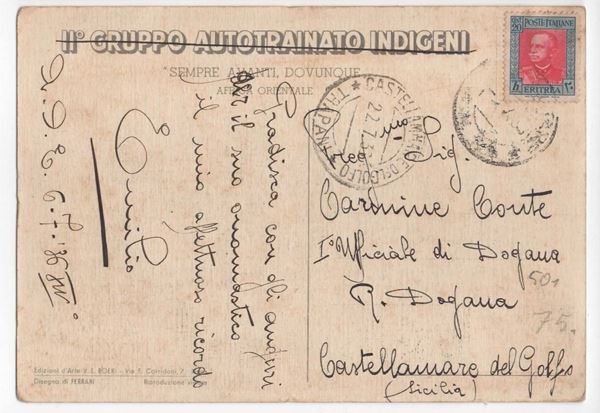 II° GRUPPO AUTOTRAINATO INDIGENI
"SEMPRE AVANTI, DOVUNQUE"
AFRICA ORIENTALE
POSTE ITALIANE
ERITREA
CASTELLAMMARE DEL GOLFO
22.7.3
* TRAPANI
A.O.E. 6-7-'36 XIV°
Gradisca con gli auguri
per il suo onomastico
il mio affettuoso ricordo
Emilio
Sig.
Carmine Conte
I° Ufficiale di Dogana
R. Dogana
Castellamare del Golfo
(Sicilia)
501
75.
Edizioni d'Arte V. E. BOERI - Via F. Corridoni, 7
Disegno di FERRARI
Riproduzione